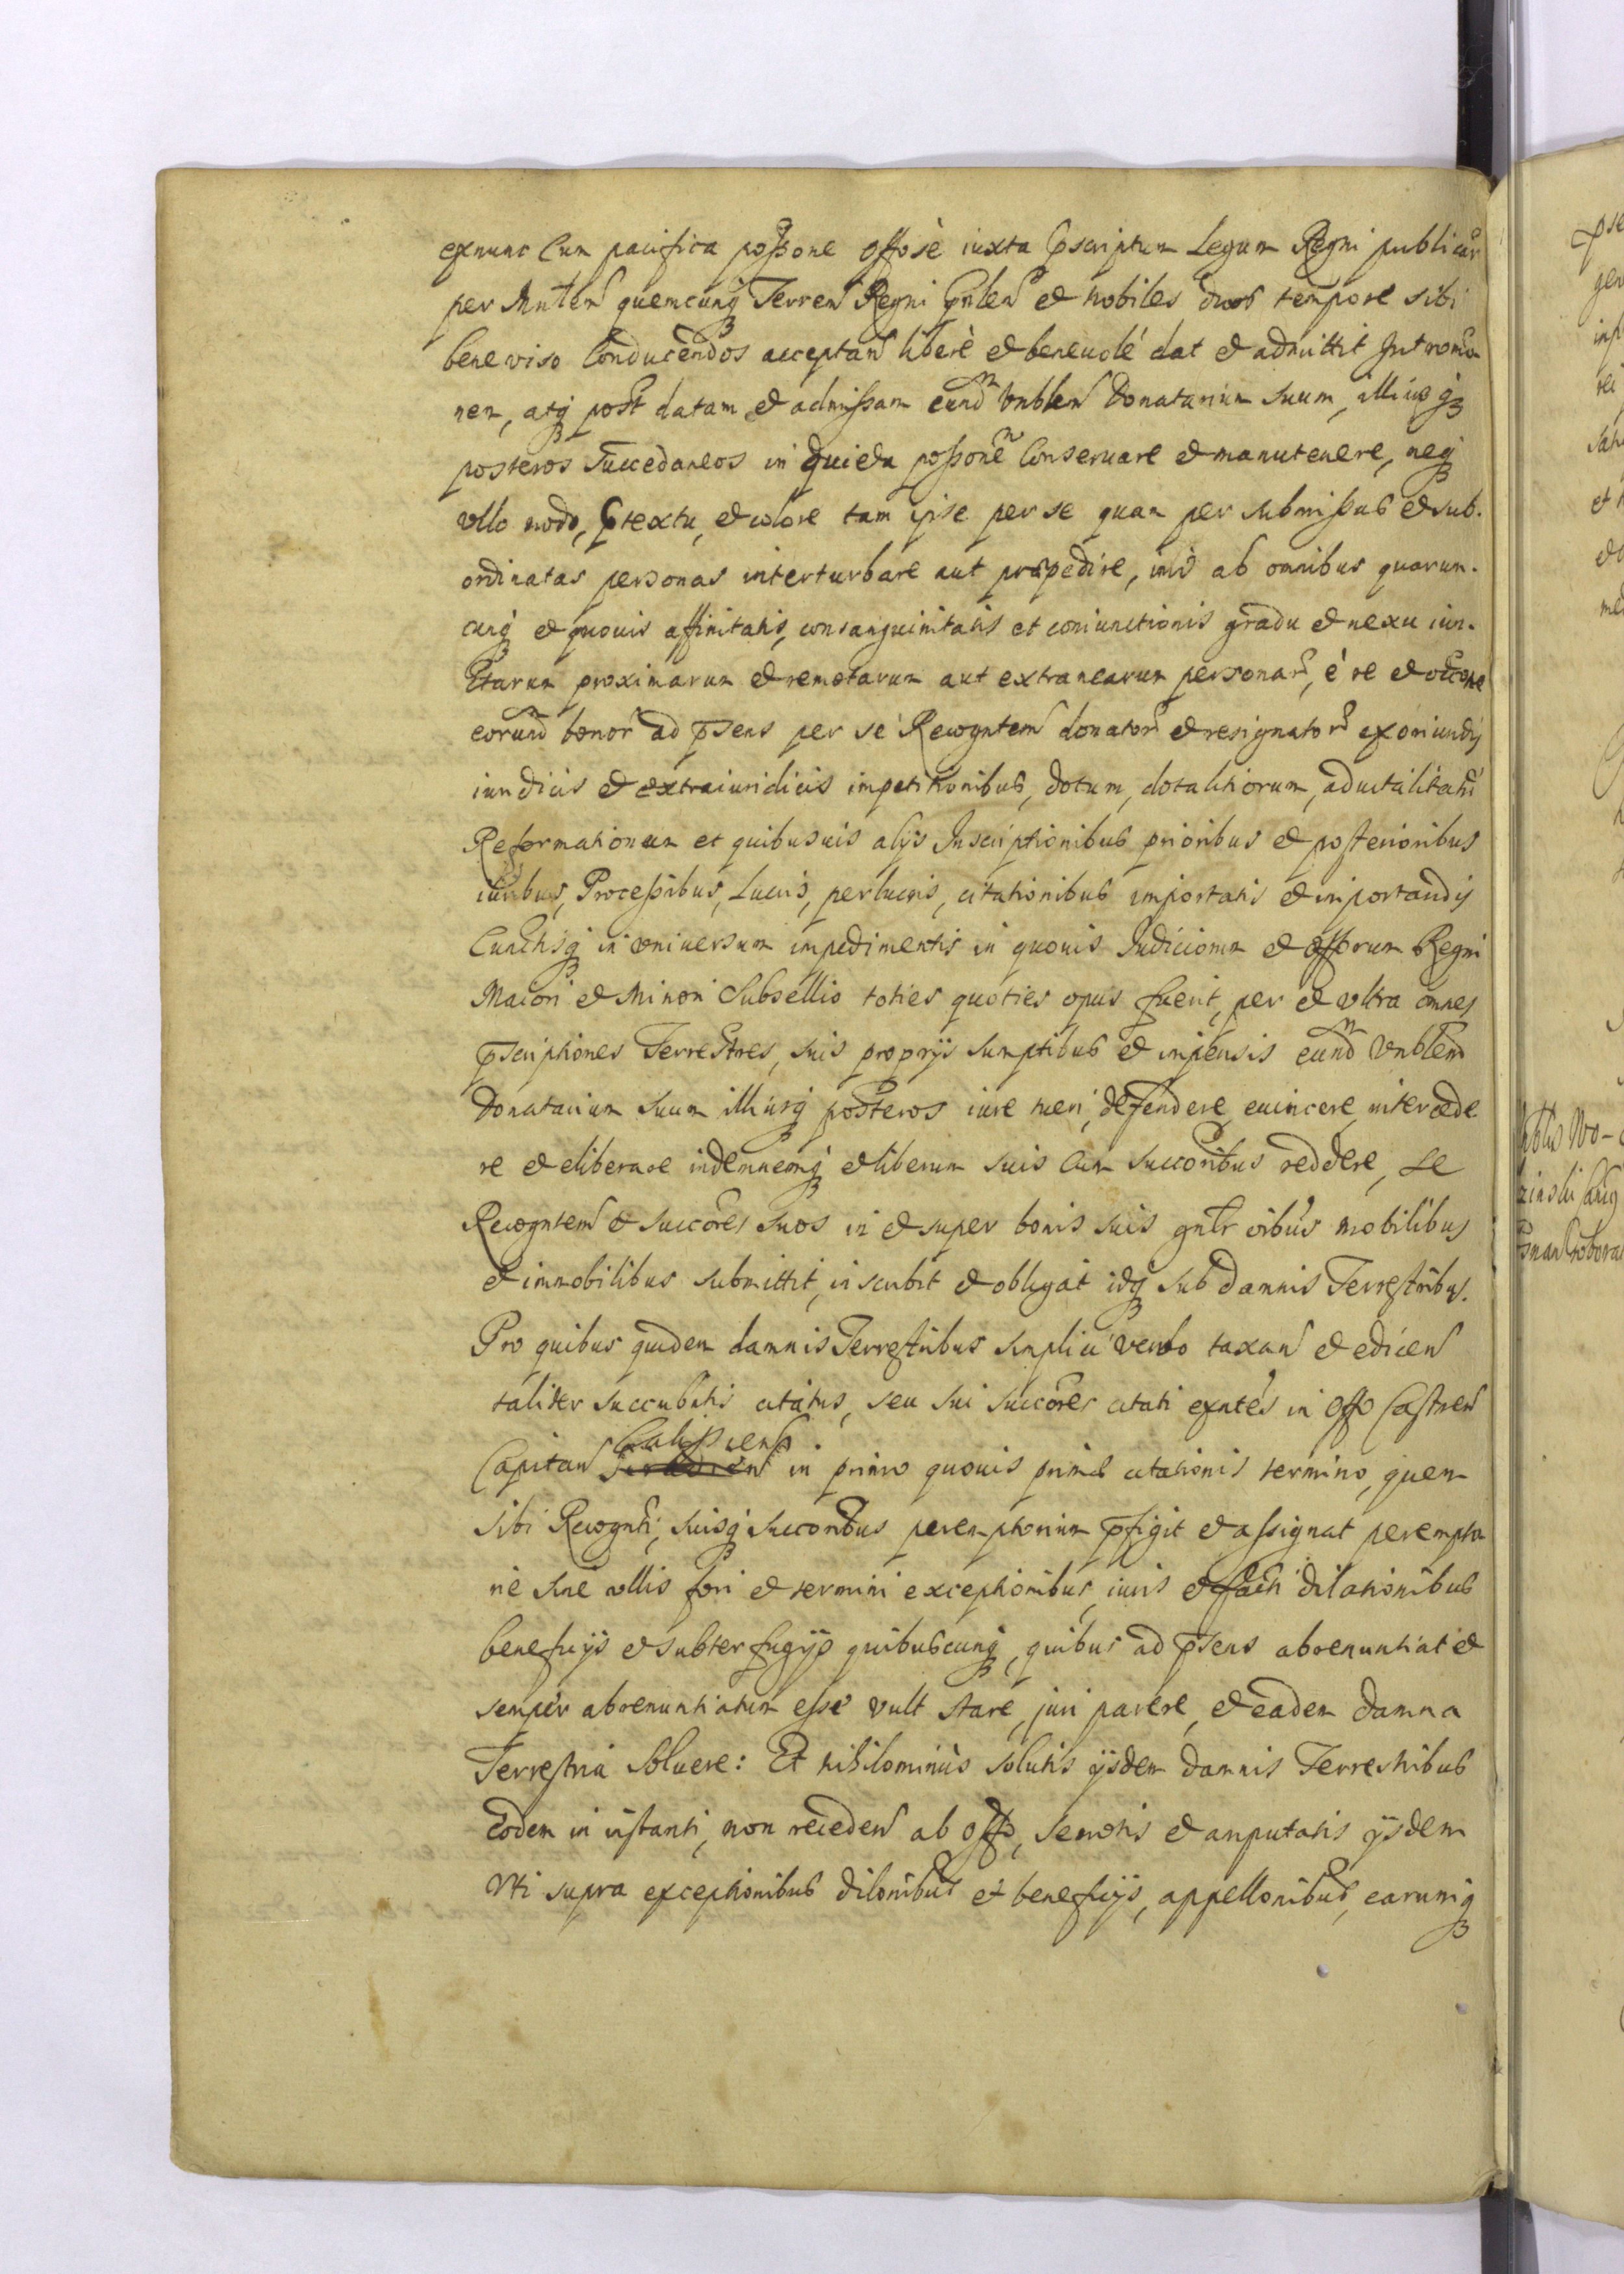 exnunc Cum pacifica possone offose iuxta pscriptum Legum Regni publicar
per Mntem quemcunq Terren Regni Gnlem et Nobiles duos tempore sibi
bene viso Conducendos acceptan libere et beneuole dat et admittit Intromo
nem, atq post datam et admissam eund Vrblem Donatarium Suum, illiusq
posteros Succedaneos in quieta possone Conseruare et manutenere, neq
vllo modo, ptextu, et colore tam ipse per se quam per submissas et sub.
ordinatas personas interturbare aut prepedire, imo ab omnibus quarum.
cunq et quouis affinitatis, consanguinitatis et coniunctionis gradu et nexu iun.
ctarum proximarum et remotarum aut extranearum personar, è re et occone
eorund bonor ad psens per se Recogntem donator et resignator exoriundis
iuridicis et extraiuridicis impetitionibus, dotum, dotalitiorum, aduitalitatu
Reformationum et quibusuis alijs Inscriptionibus prioribus et posterioribus
iuribus, Processibus, Lucris, perlucris, citationibus importatis et importandis
Cunctisq in vniuersum impedimentis in quouis Iudiciorum et offorum Regni
Maiori et Minori Subsellio toties quoties opus fuerit, per et vltra omnes
pscriptiones Terrestres, suis proprijs sumptibus et impensis eund Vrblem
Donatarium suum illiusq posteros iure tueri, defendere, euincere, intercede
re et eliberare indemnemq et liberum suis Cum succoribus reddere, se
Recogntem et succores suos in et super bonis suis gnlr oibus mobilibus
et immobilibus submittit, inscribit et obligat idq sub damnis Terrestribus.
Pro quibus quidem damnis Terrestribus simplici verbo taxan et edicen
taliter succubitis citatus, seu sui succores citati exntes in offo Castren
Capitan Calissien in primo quouis primae citationis termino, quem
sibi Recognti, suisq succoribus peremptorium pfigit et assignat perempto
rie sine vllis fori et termini exceptionibus, iuris et facti dilationibus
beneficijs et subterfugijs quibuscunq, quibus ad psens abrenuntiat et
semper abrenuntiatum esse vult stare, juri parere, et eadem damna
Terrestria soluere: Et nihilominus solutis ijsdem damnis Terrestribus
Eodem in instanti, non receden ab offo, semotis et amputatis ijsdem
Vti supra exceptionibus dilonibus et beneficijs, appellonibus, earumq